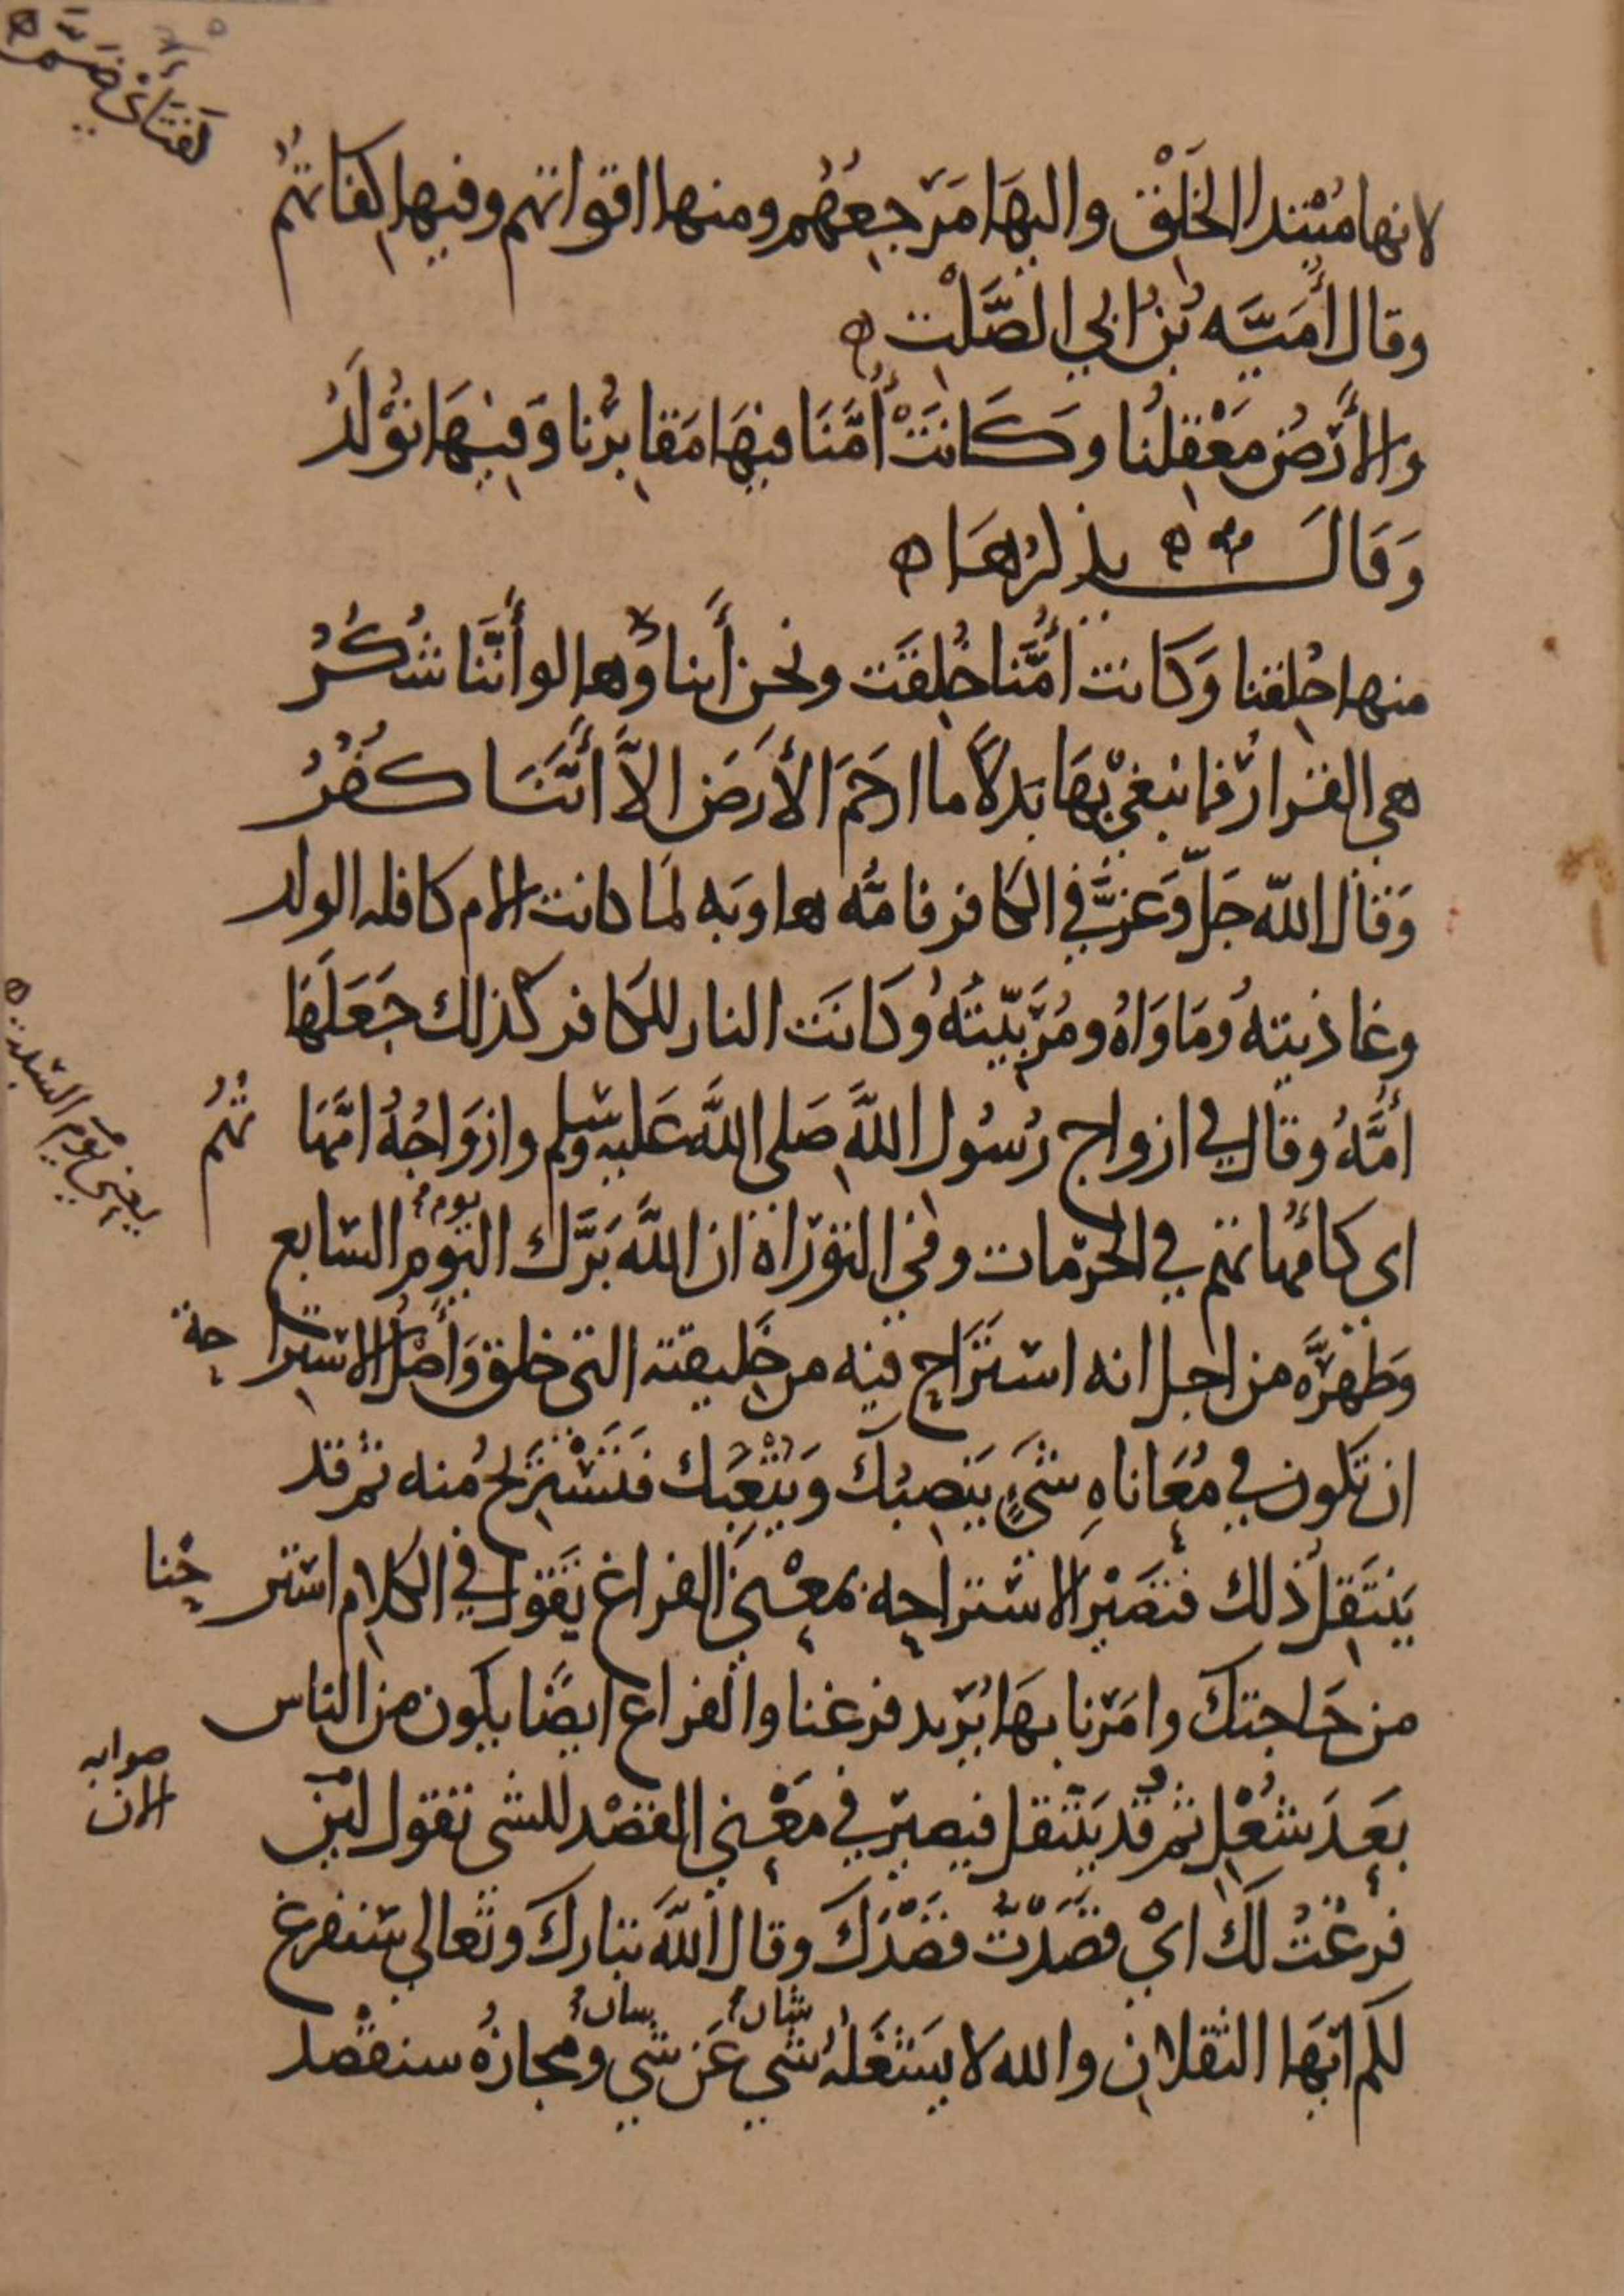 لانها مُبْتدا الخَلْق واليهَا مَرجِعُهُم ومنها اقواتهم وفيها كِفَاتهُم
وقال أُمَيَّه بْنُ ابي الصَّلْت ه
والأَرْضُ مَعْقِلُنا وَكَانَتْ أُمَّنَا فيهَا مَقابِرُنا وَفيهَا نُوْلَدُ
وَقَالَ يذكرُهَا ه
منها خُلِقنا وَكَانت أُمَّنا خُلِقَت ونحن أَبناؤُها لو أَنَّنا شُكُرُ
هي القَرارُ فما نبغي بهَا بَدلاً ما ارحَمَ الأَرضَ الاَّ أَنَّنَا كُفُرُ
وَقال اللّه جَلَّ وَعَزَّ في الكافر فامُّه هاويَه لمَا كانت الام كافله الولد
وغاذيتهُ ومَاوَاهُ ومُرَبِّيتَهُ وكَانَت النار للكافر كذلك جَعَلَهَا
أُمَّهُ وقال في ازواج رَسُول اللّه صَلى اللّه عَليه وسلم وازوَاجُهُ امَّهَا تهُم
اي كأمّهاتهم في الحرمات وفي التوْرَاة ان اللّهَ بَرَّك اليوم السّابع
وَطَهَّرَه من اجل انه استَرَاح فيه من خَليقته التي خلق وَأصْلُ الاسترا حة
ان تكون في مُعَاناهِ شيٍ يَنصِبُكَ وَيُتْعِبُك فتَسْتَرِيحُ منه ثم قد
يَنتَقِلُ ذلك فتَصَيْرُ الاستراحه بمعْنيَ الفراغ تقول في الكلام استر حْنا
من حَاجتكَ وامَرْنا بهَا يُريد فرغنا والفراغ ايضًا يكون من الناس
بعَدَ شُغْلٍ ثم قد يَنْتقل فيصير في مَعْني القصْد للشي تقول لين
فرغْتُ لَكَ ايْ قصَدْتَ قصْدَكَ وقال اللّهَ تبارَكَ وتعالي سنفرغ
لكم ايّهَا الثقلانِ والله لا يَشْغَلُهُ شي عَن شي ومجازهُ سنقصْد
يوم
شان
شان
يعني يوم السبت ه
صوابه
لان